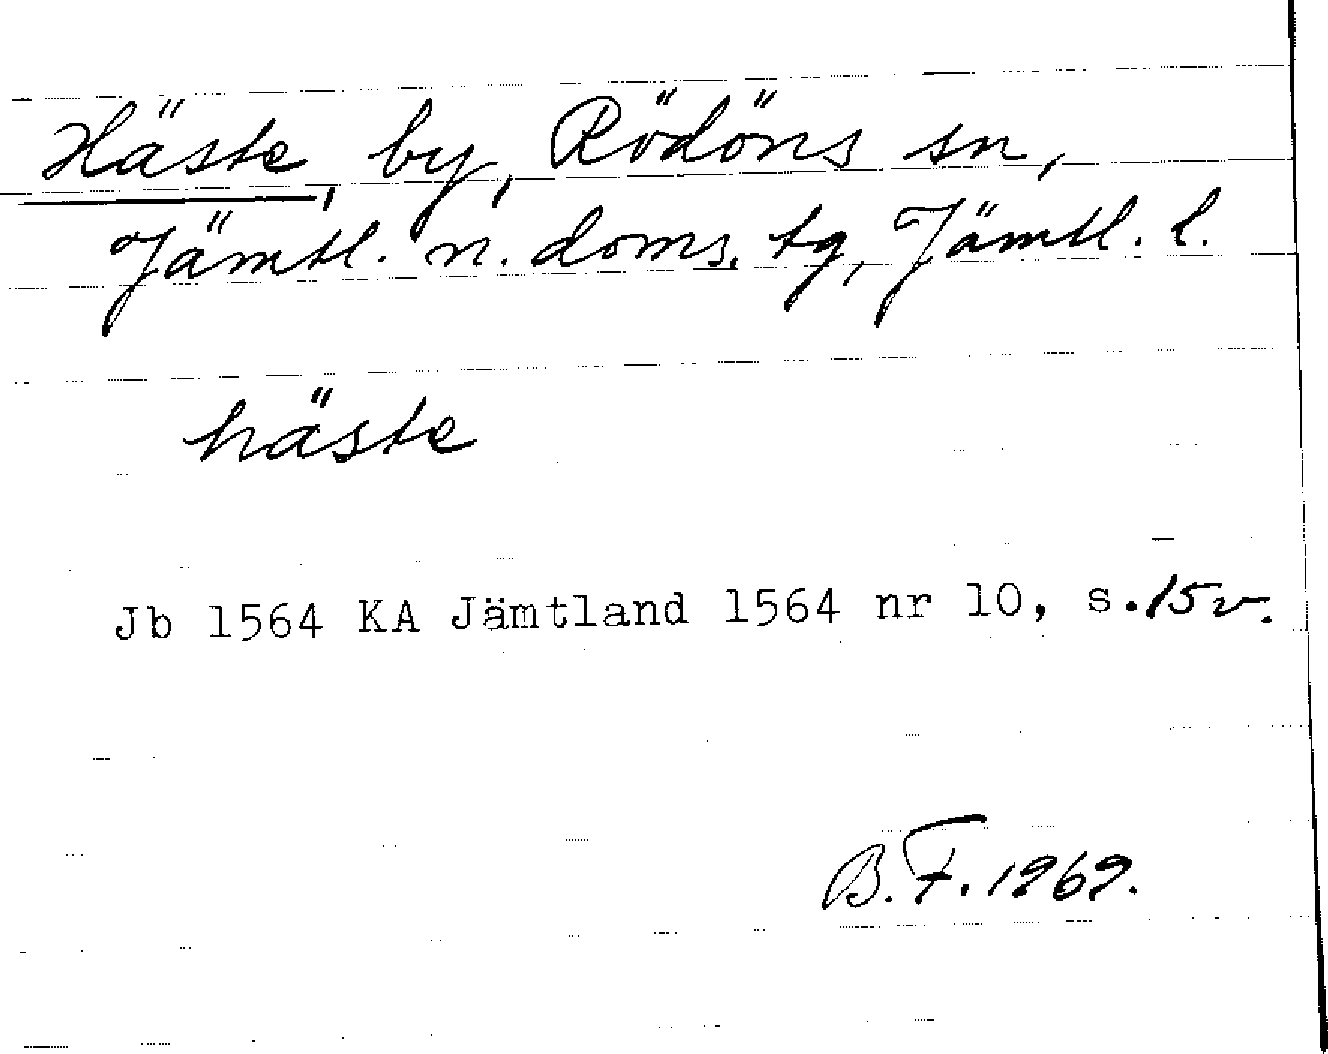 Häste, by, Rödöns sn,
Jämtl. n. doms. tg, Jämtl. l.
häste
Jb 1564 KA Jämtland 1564 nr 10, s. 15 v.
B. F. 1969.